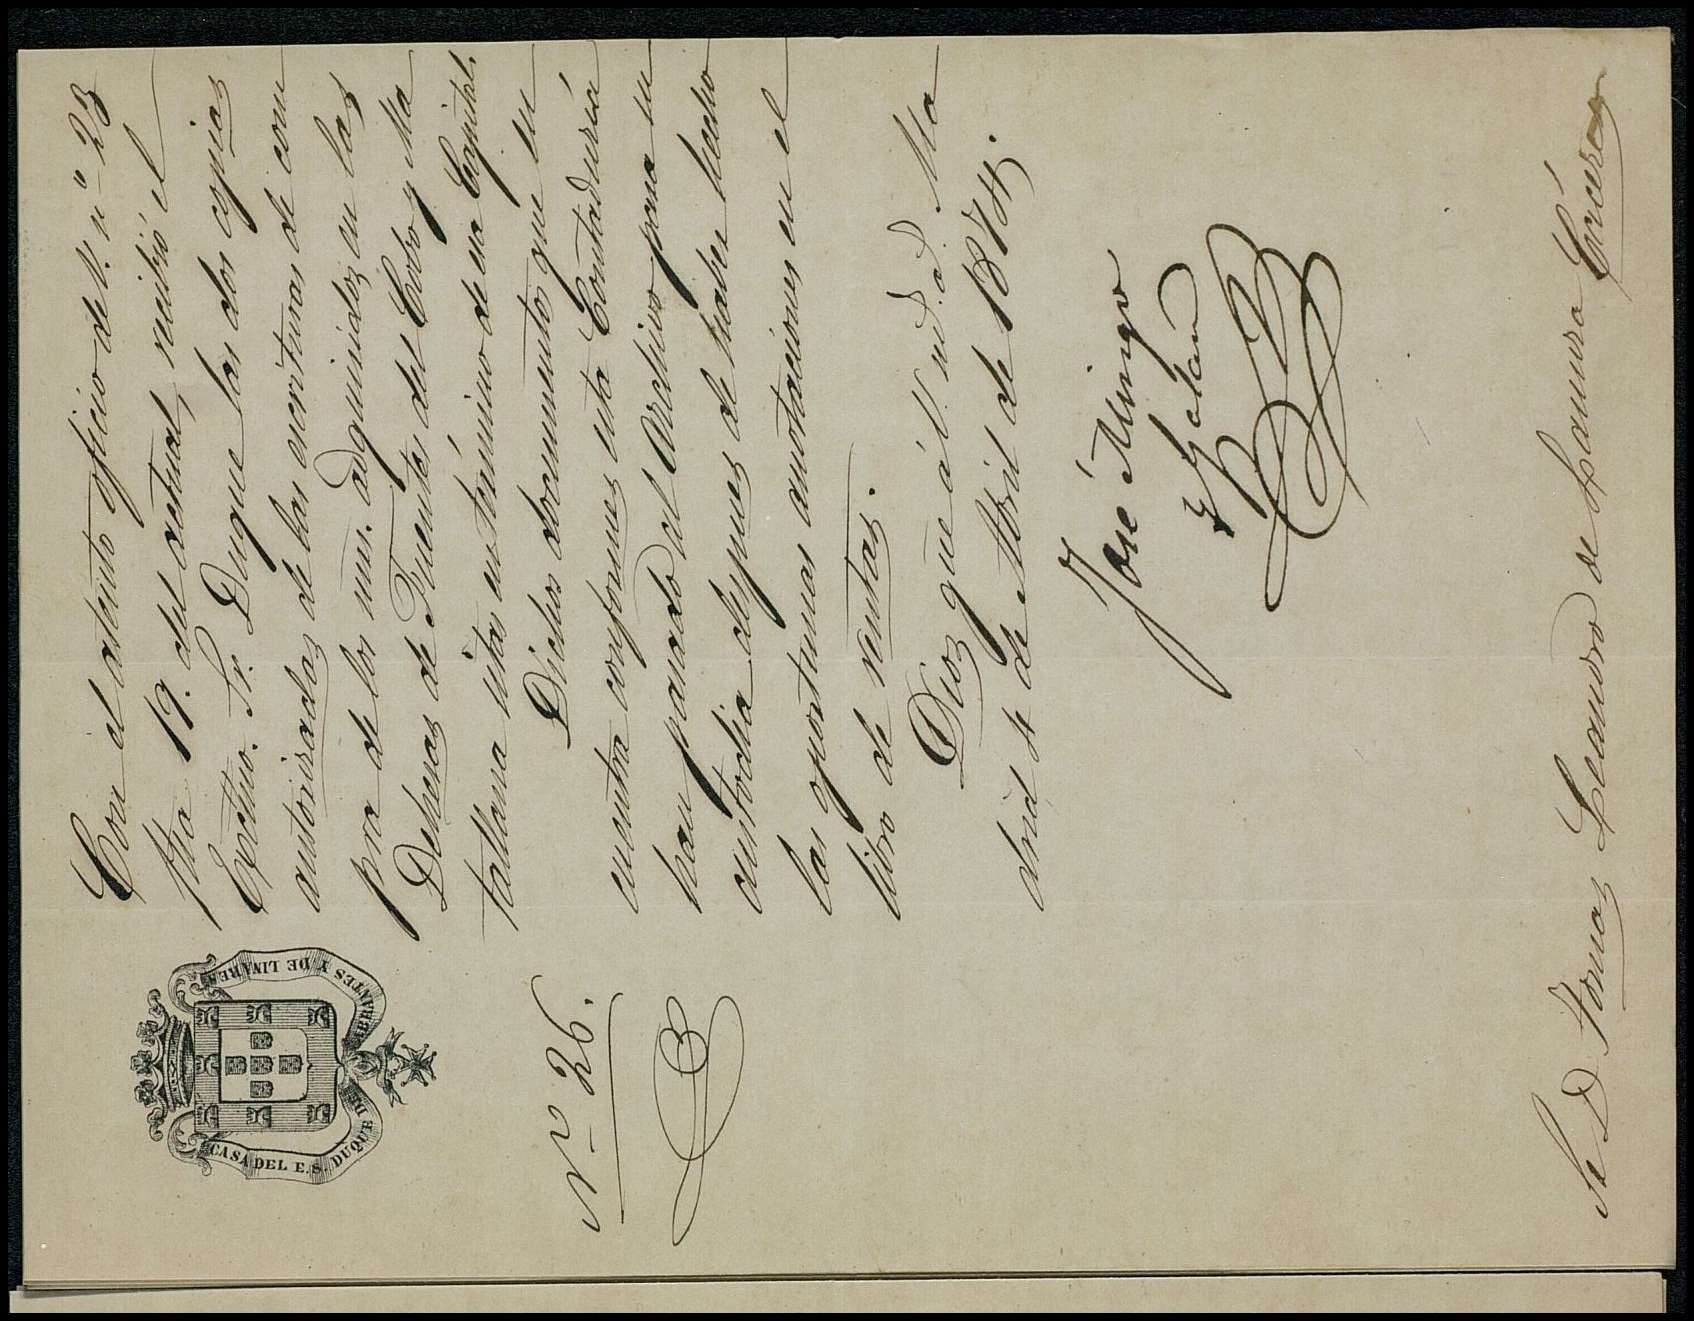 CASA DEL E. S. DUQUE DE ABRANTES Y DE LINARES
Nº 26.
Con el atento oficio de V. nº 23
fha 19. del actual, recibió el
Excmo. Sr. Duque las dos copias
autorizadas de las escrituras de com
pra de los mrs. adquiridos en las
Dehesas de Fuentes del Corbo y Ma
tallana, sitas en término de esa Capital.
Dichos documentos que en
cuentra conformes esta Contaduría
han pasado al Archivo para su
custodia despues de haber hecho
las oportunas anotaciones en el
libro de rentas.
Dios gue á V. ms. as. Ma
drid 4 de Abril de 1874.
José Mingo
y Galan
Sr. D Tomas Leandro de Laura Cáceres